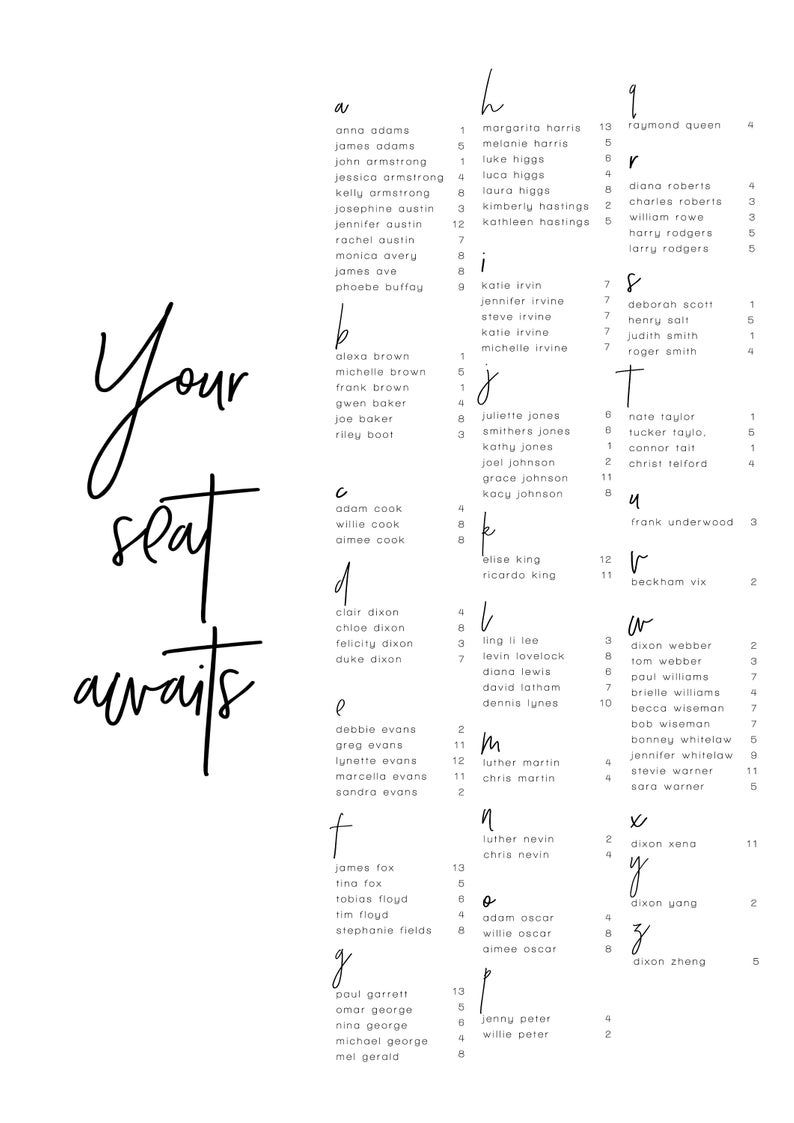 Your
seat
awaits
a
anna adams 1
james adams 5
john armstrong 1
jessica armstrong 4
kelly armstrong 8
josephine austin 3
jennifer austin 12
rachel austin 7
monica avery 8
james ave 8
phoebe buffay 9
b
alexa brown 1
michelle brown 5
frank brown 1
gwen baker 4
joe baker 8
riley boot 3
c
adam cook 4
willie cook 8
aimee cook 8
d
clair dixon 4
chloe dixon 8
felicity dixon 3
duke dixon 7
e
debbie evans 2
greg evans 11
lynette evans 12
marcella evans 11
sandra evans 2
f
james fox 13
tina fox 5
tobias floyd 6
tim floyd 4
stephanie fields 8
g
paul garrett 13
omar george 5
nina george 6
michael george 4
mel gerald 8
h
margarita harris 13
melanie harris 5
luke higgs 6
luca higgs 4
laura higgs 8
kimberly hastings 2
kathleen hastings 5
i
katie irvin 7
jennifer irvine 7
steve irvine 7
katie irvine 7
michelle irvine 7
j
juliette jones 6
smithers jones 6
kathy jones 1
joel johnson 2
grace johnson 11
kacy johnson 8
k
elise king 12
ricardo king 11
l
ling li lee 3
levin lovelock 8
diana lewis 6
david latham 7
dennis lynes 10
m
luther martin 4
chris martin 4
n
luther nevin 2
chris nevin 4
o
adam oscar 4
willie oscar 8
aimee oscar 8
p
jenny peter 4
willie peter 2
q
raymond queen 4
r
diana roberts 4
charles roberts 3
william rowe 3
harry rodgers 5
larry rodgers 5
s
deborah scott 1
henry salt 5
judith smith 1
roger smith 4
T
nate taylor 1
tucker taylo, 5
connor tait 1
christ telford 4
u
frank underwood 3
v
beckham vix 2
w
dixon webber 2
tom webber 3
paul williams 7
brielle williams 4
becca wiseman 7
bob wiseman 7
bonney whitelaw 5
jennifer whitelaw 9
stevie warner 11
sara warner 5
x
dixon xena 11
y
dixon yang 2
z
dixon zheng 5